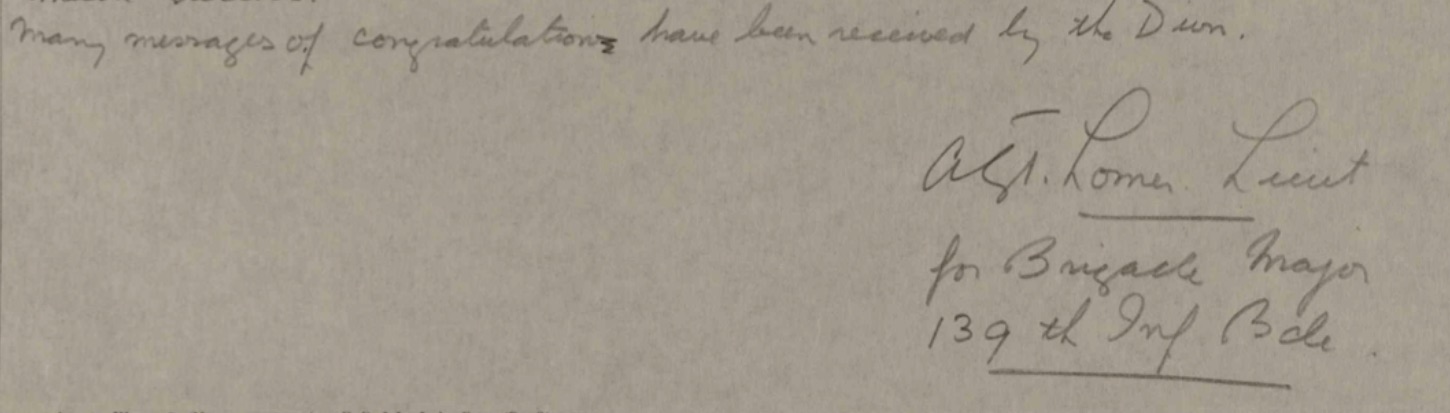 Many messages of congratulations have been received by the Divn.
Lieut
for Brigade Major
139th Inf Bde.